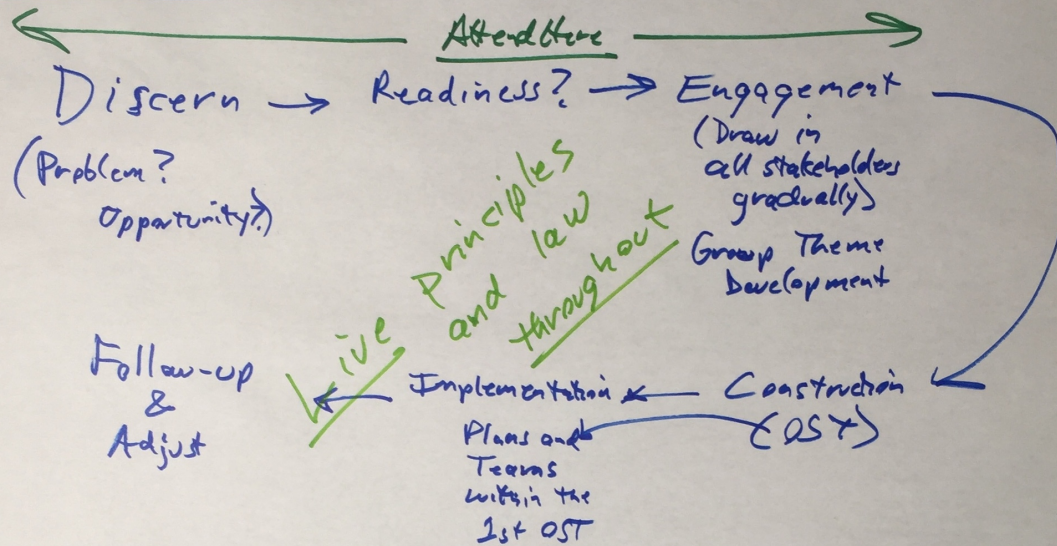 Attend Here
Discern → Readiness? → Engagement
(Problem?
Opportunity?)
(Draw in
all stakeholders
gradually)
Group Theme
Development
Live principles
and law
throughout
Construction
(OST)
Implementation
Plans and
Teams
within the
1st OST
Follow-up
&
Adjust